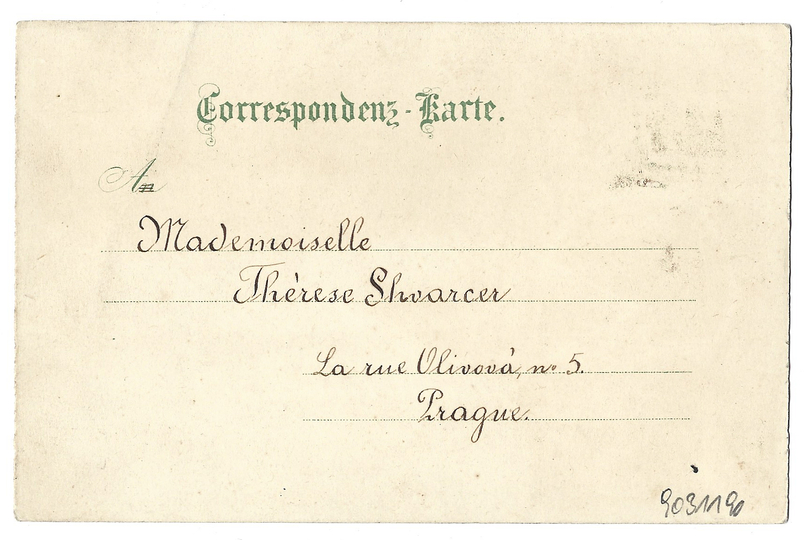 Correspondenz-Karte.
An
Mademoiselle
Thérese Shvarcer
La rue Olivová, no 5.
Prague.
9031190